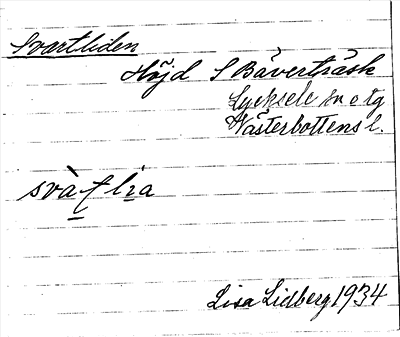 Svartliden
Höjd S Bäverträsk
Lycksele sn o tg
Västerbottens l.
svàf lìa
Lisa Lidberg 1934